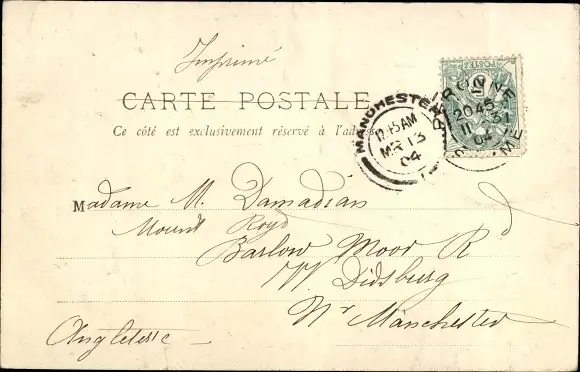 Imprimé
CARTE POSTALE
Ce côté est exclusivement réservé à l'adresse
MANCHESTER
12.15 AM
MR 13
04
PERONNE
20 45
11 - 3
04
POSTES
Madame M. Damadian
Mount Royd
Barlow Moor Rd
Didsbury
Nr Manchester
Angleterre